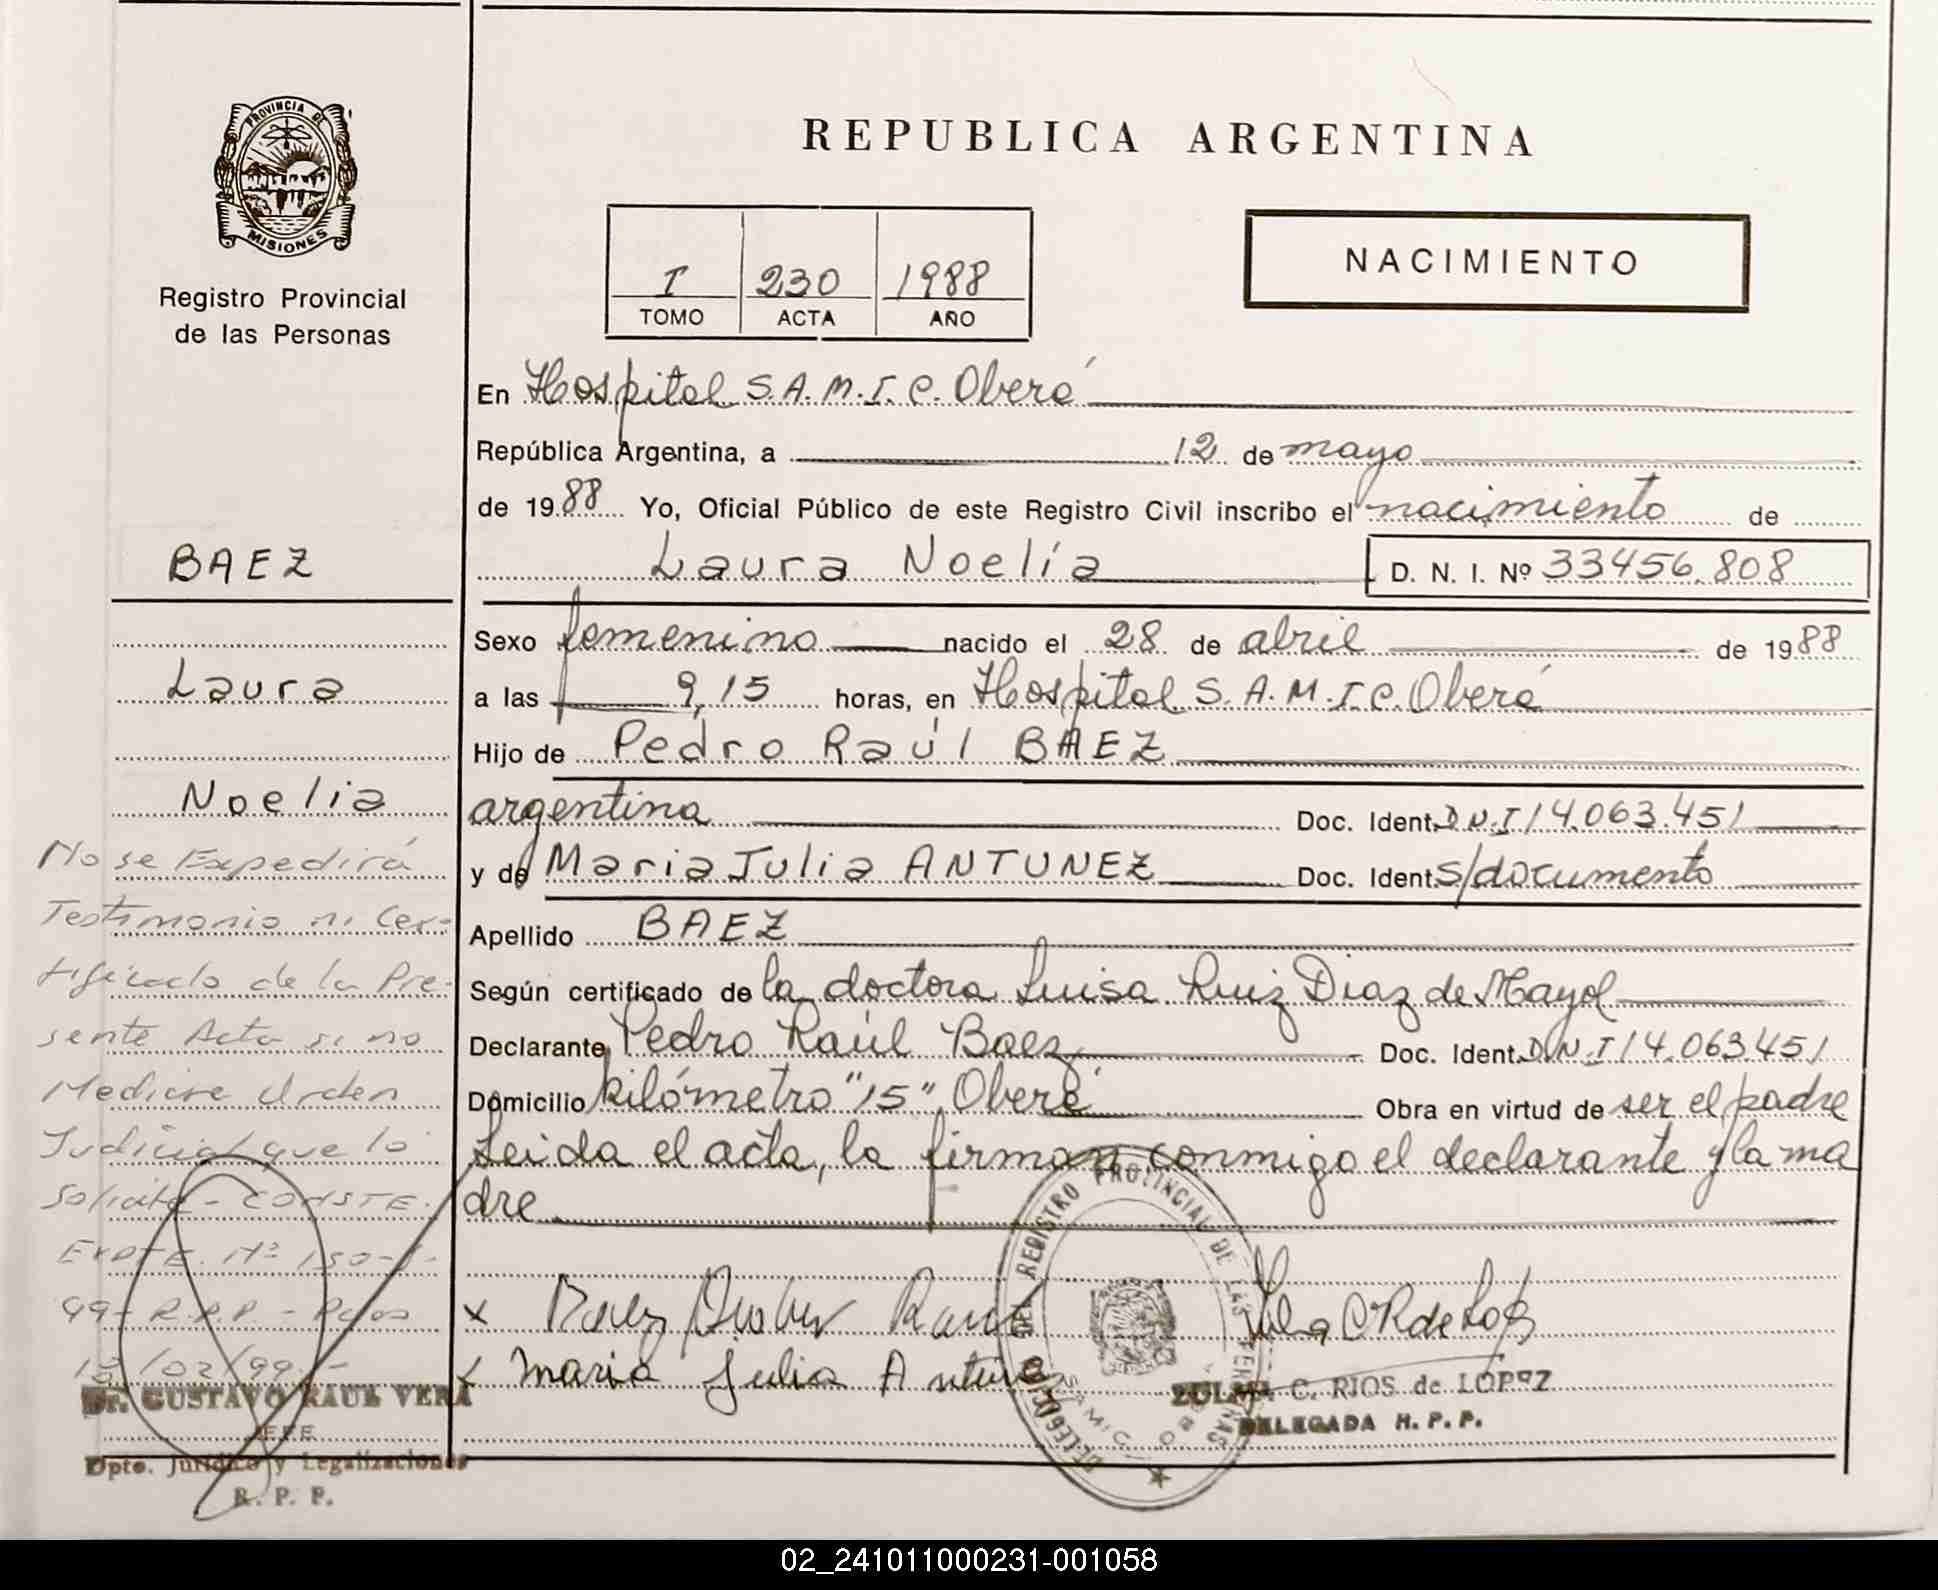 PROVINCIA DE
MISIONES
Registro Provincial
de las Personas
REPUBLICA ARGENTINA
I 230 1988
TOMO ACTA AÑO
NACIMIENTO
En Hospital S.A.M.I.C. Oberá
República Argentina, a 12 de mayo
de 1988 Yo, Oficial Público de este Registro Civil inscribo el nacimiento de
Laura Noelia D. N. I. Nº 33456.808
Sexo femenino nacido el 28 de abril de 1988
a las 9,15 horas, en Hospital S.A.M.I.C. Oberá
Hijo de Pedro Raúl BAEZ
argentina Doc. Ident. D.N.I 14.063.451
y de Maria Julia ANTUNEZ Doc. Ident. s/documento
Apellido BAEZ
Según certificado de la doctora Luisa Ruiz Diaz de Mayol
Declarante Pedro Raúl Baez Doc. Ident. D.N.I 14.063.451
Domicilio kilómetro "15", Oberá Obra en virtud de ser el padre
Leida el acta, la firman conmigo el declarante y la ma
dre
x Baez
x maria Julia Antunez
REGISTRO PROVINCIAL DE LAS PERSONAS
ZULMA C. RIOS de LOPEZ
DELEGADA R. P. P.
BAEZ
Laura
Noelia
No se Expedirá
Testimonio ni Cer-
tificado de la Pre-
sente Acta si no
Mediare Orden
Judicial que lo
Solicite - CONSTE.
EXPTE. Nº 150-
99 - R.P.P. - Pdas
/02/99.-
Dr. GUSTAVO RAUL VERA
JEFE
Dpto. Jurídico y Legalizaciones
R. P. P.
02_241011000231-001058